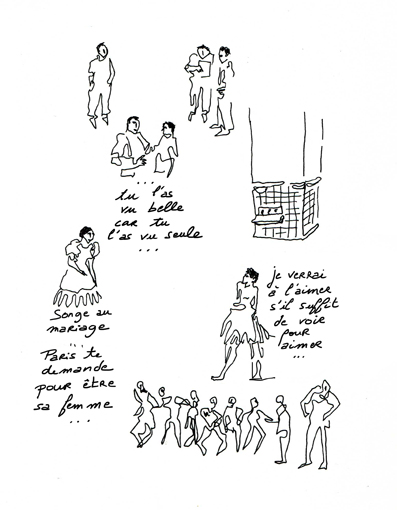 ...
tu l'as
vu belle
car tu
l'as vu seule
...
Songe au
mariage
...
Paris te
demande
pour être
sa femme
...
je verrai
à l'aimer
s'il suffit
de voir
pour
aimer
...